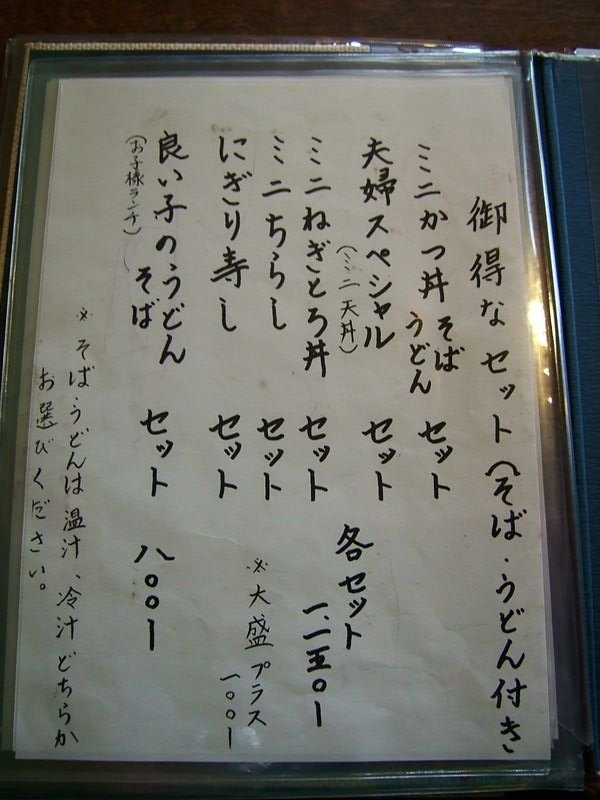 御得な セット(そば・うどん付き
ミニかつ丼 そば うどん セット
夫婦スペシャル セット
(ミニ天丼)
各セット 一、一五〇ー
ミニねぎとろ丼 セット
ミニちらし セット
※大盛プラス 一〇〇ー
にぎり寿し セット
良い子のうどん そば セット 八〇〇ー
(お子様ランチ)
※そば・うどんは温汁、冷汁どちらか
お選びください。